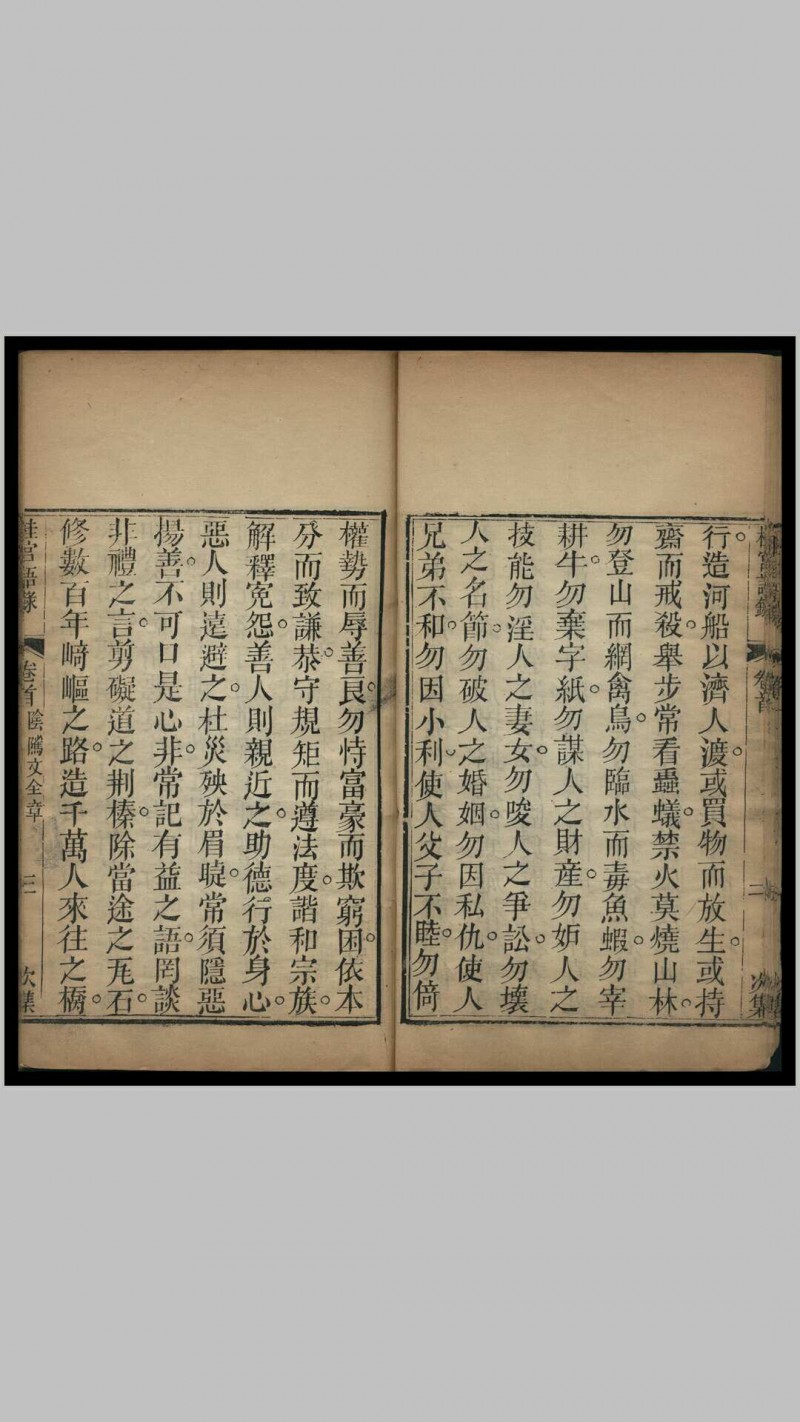 桂宮語錄 卷首 二 次集
行造河船以濟人渡或買物而放生或持
齋而戒殺舉步常看蟲蟻禁火莫燒山林
勿登山而網禽鳥勿臨水而毒魚蝦勿宰
耕牛勿棄字紙勿謀人之財產勿妒人之
技能勿淫人之妻女勿唆人之爭訟勿壞
人之名節勿破人之婚姻勿因私仇使人
兄弟不和勿因小利使人父子不睦勿倚
權勢而辱善良勿恃富豪而欺窮困依本
分而致謙恭守規矩而遵法度諧和宗族
解釋寃怨善人則親近之助德行於身心
惡人則遠避之杜災殃於眉睫常須隱惡
揚善不可口是心非常記有益之語罔談
非禮之言剪礙道之荆榛除當途之瓦石
修數百年崎嶇之路造千萬人來往之橋
桂宮語錄 卷首 陰騭文全章 三 次集